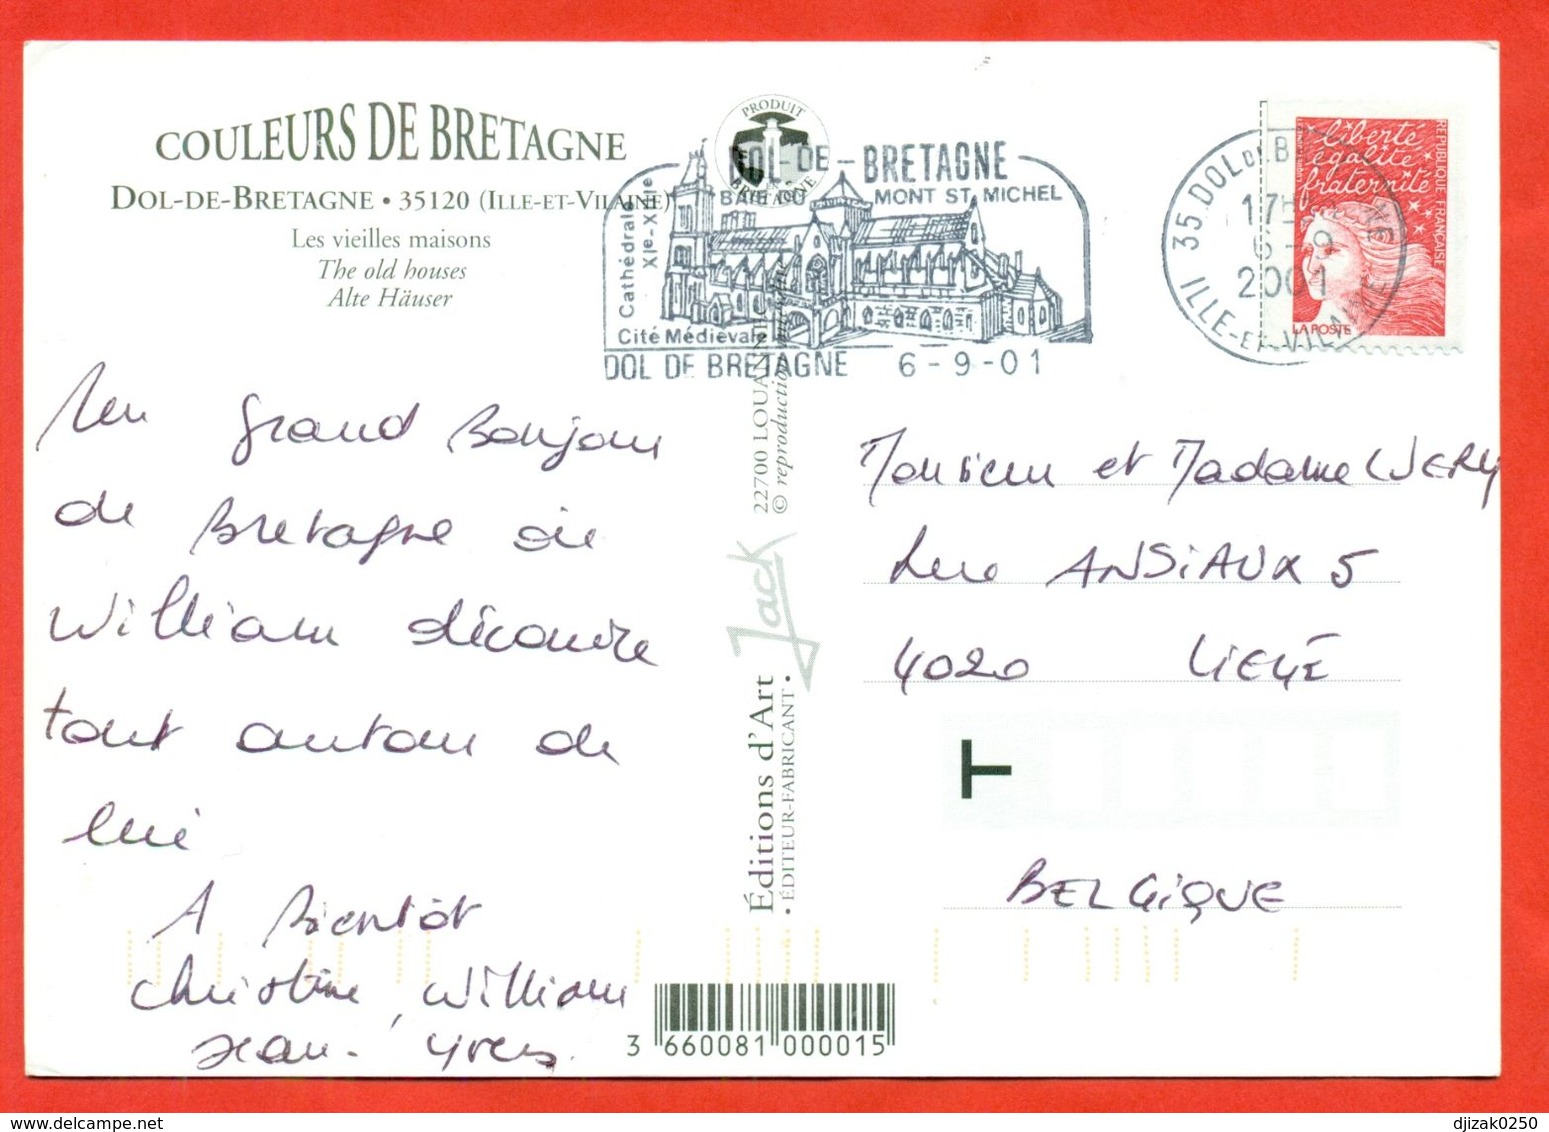 COULEURS DE BRETAGNE
DOL-DE-BRETAGNE • 35120 (ILLE-ET-VILAINE)
Les vieilles maisons
The old houses
Alte Häuser
PRODUIT
EN
BRETAGNE
DOL-DE-BRETAGNE
BAIE DU MONT ST MICHEL
Cathédrale
XIe-XIIIe
Cité Médiévale
DOL DE BRETAGNE 6-9-01
35 DOL DE BRETAGNE
17H
6-9
2001
ILLE-ET-VILAINE
liberté
égalité
fraternité
RÉPUBLIQUE FRANÇAISE
LA POSTE
Un grand Bonjour
de Bretagne où
William découvre
tout autour de
lui
A Bientôt
Christine, William
Jean-Yves.
22700 LOUANNEC
© reproduction interdite
Jack
Éditions d'Art
• ÉDITEUR-FABRICANT •
Monsieur et Madame WERY
Rue ANSiAUX 5
4020 LIEGE
T
BELGiQUE
3 660081 000015
djizak0250